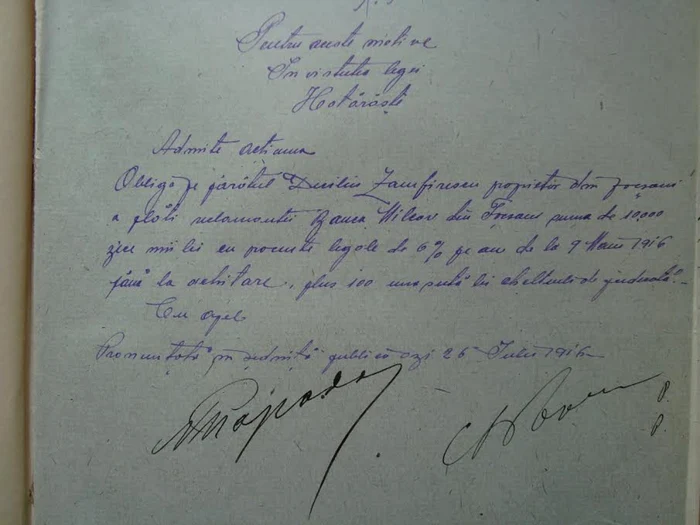 Pentru aceste motive
In virtutea legei
Hotărăște
Admite acțiunea
Obligă pe pârâtul Duiliu Zamfirescu proprietar din Focșani
a plăti reclamantei Banca Milcov din Focșani suma de 10,000
zece mii lei cu procente legale de 6% pe an de la 9 1916
până la achitare, plus 100 una sută lei cheltueli de judecată.
Cu apel
Pronunțată în ședință publică azi 26 Iulie 1916